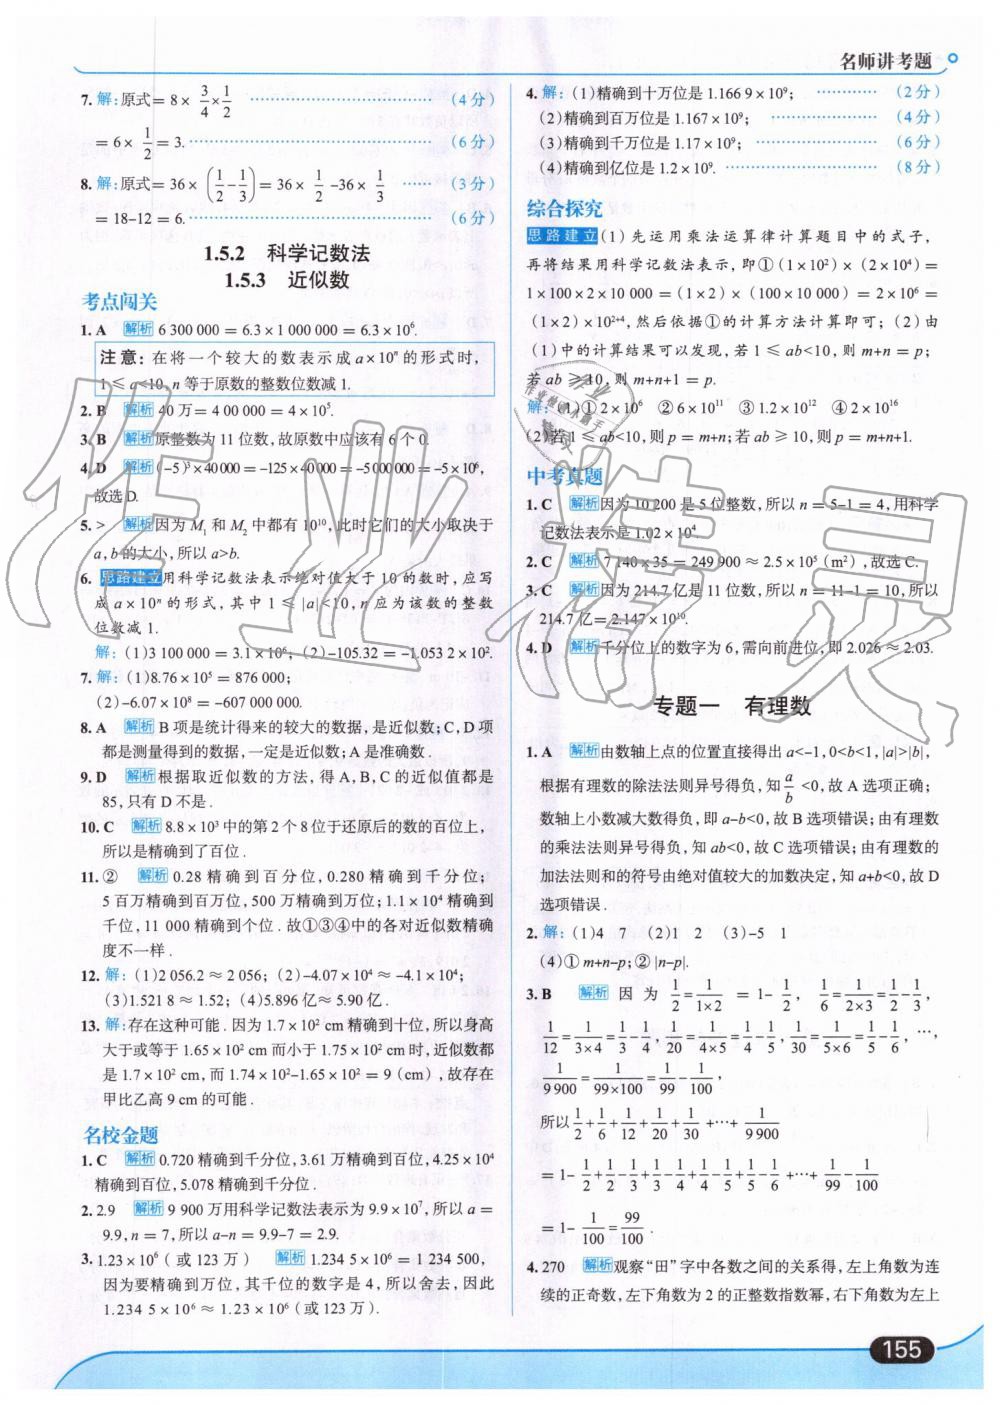 名师讲考题
7. 解:原式=8×3/4×1/2 ……(4分)
=6×1/2=3.……(6分)
8. 解:原式=36×(1/2-1/3)=36×1/2-36×1/3 ……(3分)
=18-12=6.……(6分)
1.5.2 科学记数法
1.5.3 近似数
考点闯关
1. A 解析 6 300 000=6.3×1 000 000=6.3×10⁶.
注意:在将一个较大的数表示成a×10ⁿ的形式时,
1≤a<10,n等于原数的整数位数减1.
2. B 解析 40万=4 00 000=4×10⁵.
3. B 解析 原整数为11位数,故原数中应该有6个0.
4. D 解析 (-5)³×40 000=-125×40 000=-5 000 000=-5×10⁶,
故选D.
5. > 解析 因为M₁和M₂中都有10¹⁰,此时它们的大小取决于
a,b的大小,所以a>b.
6. 思路建立 用科学记数法表示绝对值大于10的数时,应写
成a×10ⁿ的形式,其中1≤|a|<10,n应为该数的整数
位数减1.
解:(1)3 100 000=3.1×10⁶;(2)-105.32=-1.053 2×10².
7. 解:(1)8.76×10⁵=876 000;
(2)-6.07×10⁸=-607 000 000.
8. A 解析 B项是统计得来的较大的数据,是近似数;C,D项
都是测量得到的数据,一定是近似数;A是准确数.
9. D 解析 根据取近似数的方法,得A,B,C的近似值都是
85,只有D不是.
10. C 解析 8.8×10³中的第2个8位于还原后的数的百位上,
所以是精确到了百位.
11. ② 解析 0.28精确到百分位,0.280精确到千分位;
5百万精确到百万位,500万精确到万位;1.1×10⁴精确到
千位,11 000精确到个位.故①③④中的各对近似数精确
度不一样.
12. 解:(1)2 056.2≈2 056;(2)-4.07×10⁴≈-4.1×10⁴;
(3)1.521 8≈1.52;(4)5.896亿≈5.90亿.
13. 解:存在这种可能.因为1.7×10² cm精确到十位,所以身高
大于或等于1.65×10² cm而小于1.75×10² cm时,近似数都
是1.7×10² cm,而1.74×10²-1.65×10²=9(cm),故存在
甲比乙高9 cm的可能.
名校金题
1. C 解析 0.720精确到千分位,3.61万精确到百位,4.25×10⁴
精确到百位,5.078精确到千分位.
2. 2.9 解析 9 900万用科学记数法表示为9.9×10⁷,所以a=
9.9,n=7,所以a-n=9.9-7=2.9.
3. 1.23×10⁶(或123万) 解析 1.234 5×10⁶=1 234 500,
因为要精确到万位,其千位的数字是4,所以舍去,因此
1.234 5×10⁶≈1.23×10⁶(或123万).
4. 解:(1)精确到十万位是1.166 9×10⁹;……(2分)
(2)精确到百万位是1.167×10⁹;……(4分)
(3)精确到千万位是1.17×10⁹;……(6分)
(4)精确到亿位是1.2×10⁹.……(8分)
综合探究
思路建立 (1)先运用乘法运算律计算题目中的式子,
再将结果用科学记数法表示,即①(1×10²)×(2×10⁴)=
1×100×2×10 000=(1×2)×(100×10 000)=2×10⁶=
(1×2)×10²⁺⁴,然后依据①的计算方法计算即可;(2)由
(1)中的计算结果可以发现,若1≤ab<10,则m+n=p;
若ab≥10,则m+n+1=p.
解:(1)①2×10⁶ ②6×10¹¹ ③1.2×10¹² ④2×10¹⁶
(2)若1≤ab<10,则p=m+n;若ab≥10,则p=m+n+1.
中考真题
1. C 解析 因为10 200是5位整数,所以n=5-1=4,用科学
记数法表示是1.02×10⁴.
2. C 解析 7 140×35=249 900≈2.5×10⁵(m²),故选C.
3. C 解析 因为214.7亿是11位数,所以n=11-1=10,所以
214.7亿=2.147×10¹⁰.
4. D 解析 千分位上的数字为6,需向前进位,即2.026≈2.03.
专题一 有理数
1. A 解析 由数轴上点的位置直接得出a<-1,0<b<1,|a|>|b|,
根据有理数的除法法则异号得负,知a/b<0,故A选项正确;
数轴上小数减大数得负,即a-b<0,故B选项错误;由有理数
的乘法法则异号得负,知ab<0,故C选项错误;由有理数的
加法法则和的符号由绝对值较大的加数决定,知a+b<0,故D
选项错误.
2. 解:(1)4 7 (2)1 2 (3)-5 1
(4)①m+n-p;②|n-p|.
3. B 解析 因为1/2=1/1×2=1-1/2,1/6=1/2×3=1/2-1/3,
1/12=1/3×4=1/3-1/4,1/20=1/4×5=1/4-1/5,1/30=1/5×6=1/5-1/6,…,
1/9 900=1/99×100=1/99-1/100,
所以1/2+1/6+1/12+1/20+1/30+…+1/9 900
=1-1/2+1/2-1/3+1/3-1/4+1/4-1/5+1/5-1/6+…+1/99-1/100
=1-1/100=99/100.
4. 270 解析 观察“田”字中各数之间的关系得,左上角数为连
续的正奇数,左下角数为2的正整数指数幂,右下角数为左上
155
作业精灵